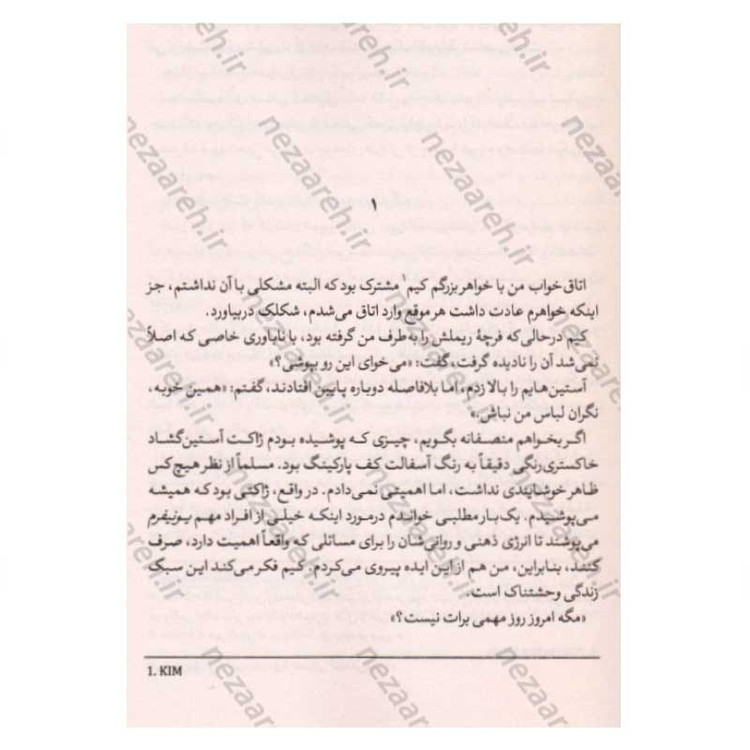 ۱
اتاق خواب من با خواهر بزرگم کیم۱ مشترک بود که البته مشکلی با آن نداشتم، جز
اینکه خواهرم عادت داشت هر موقع وارد اتاق می‌شدم، شکلک دربیاورد.
کیم درحالی‌که فرچهٔ ریملش را به‌طرف من گرفته بود، با ناباوری خاصی که اصلاً
نمی‌شد آن را نادیده گرفت، گفت: «می‌خوای این رو بپوشی؟»
آستین‌هایم را بالا زدم، اما بلافاصله دوباره پایین افتادند، گفتم: «همین خوبه،
نگران لباس من نباش.»
اگر بخواهم منصفانه بگویم، چیزی که پوشیده بودم ژاکت آستین‌گشاد
خاکستری‌رنگی دقیقاً به رنگ آسفالت کف پارکینگ بود. مسلماً از نظر هیچ‌کس
ظاهر خوشایندی نداشت، اما اهمیتی نمی‌دادم. در واقع، ژاکتی بود که همیشه
می‌پوشیدم. یک‌بار مطلبی خواندم درمورد اینکه خیلی از افراد مهم یونیفرم
می‌پوشند تا انرژی ذهنی و روانی‌شان را برای مسائلی که واقعاً اهمیت دارد، صرف
کنند، بنابراین، من هم از این ایده پیروی می‌کردم. کیم فکر می‌کند این سبک
زندگی وحشتناک است.
«مگه امروز روز مهمی برات نیست؟»
1. KIM
nezaareh.ir
nezaareh.ir
nezaareh.ir
nezaareh.ir
nezaareh.ir
nezaareh.ir
nezaareh.ir
nezaareh.ir
nezaareh.ir
nezaareh.ir
nezaareh.ir
nezaareh.ir